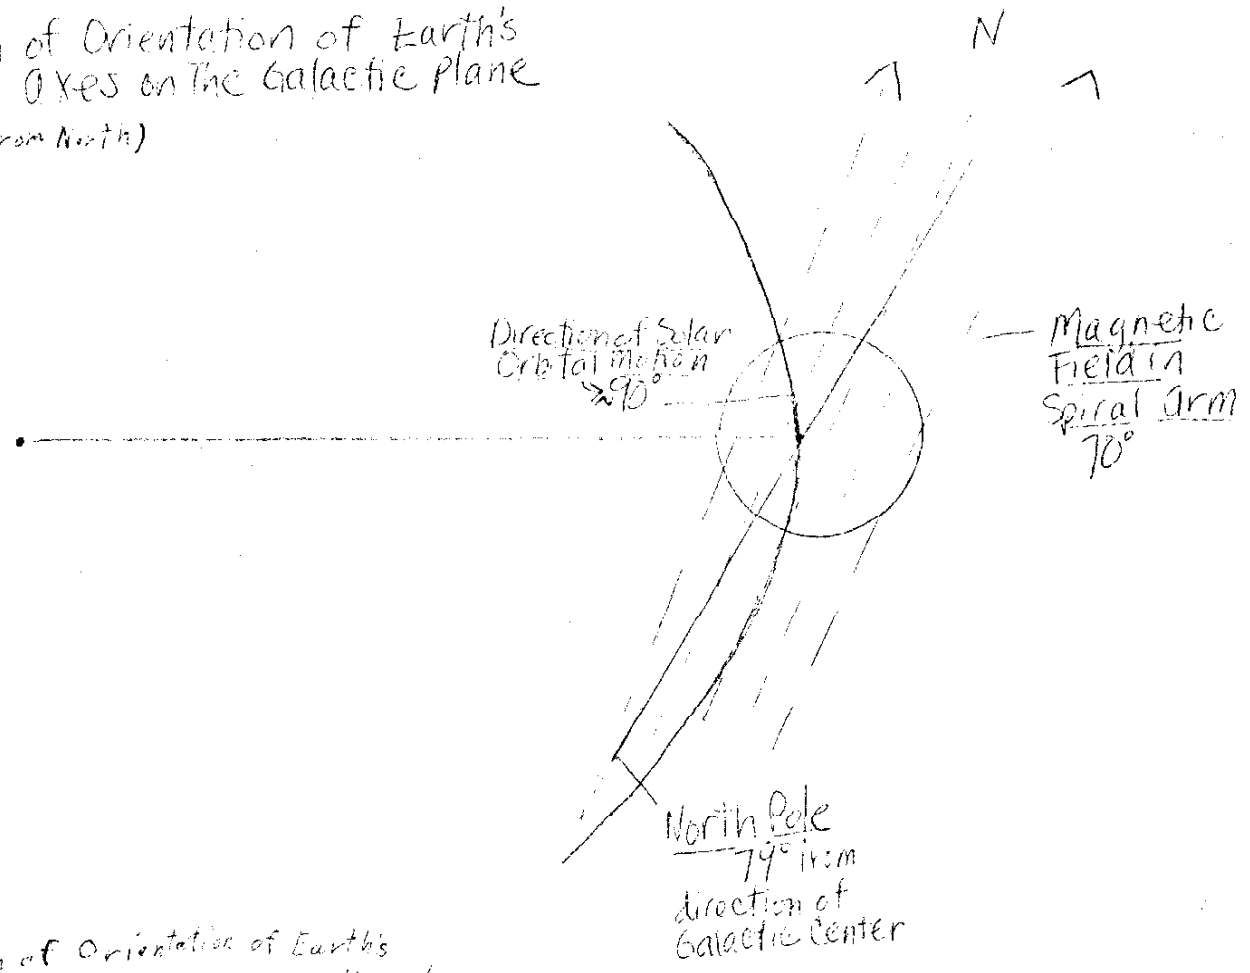 of Orientation of Earth's
Axes on The Galactic Plane
from North)
N
Direction of Solar
Orbital Motion
≈90°
Magnetic
Field in
Spiral Arm
70°
North Pole
79° from
direction of
Galactic Center
of Orientation of Earth's